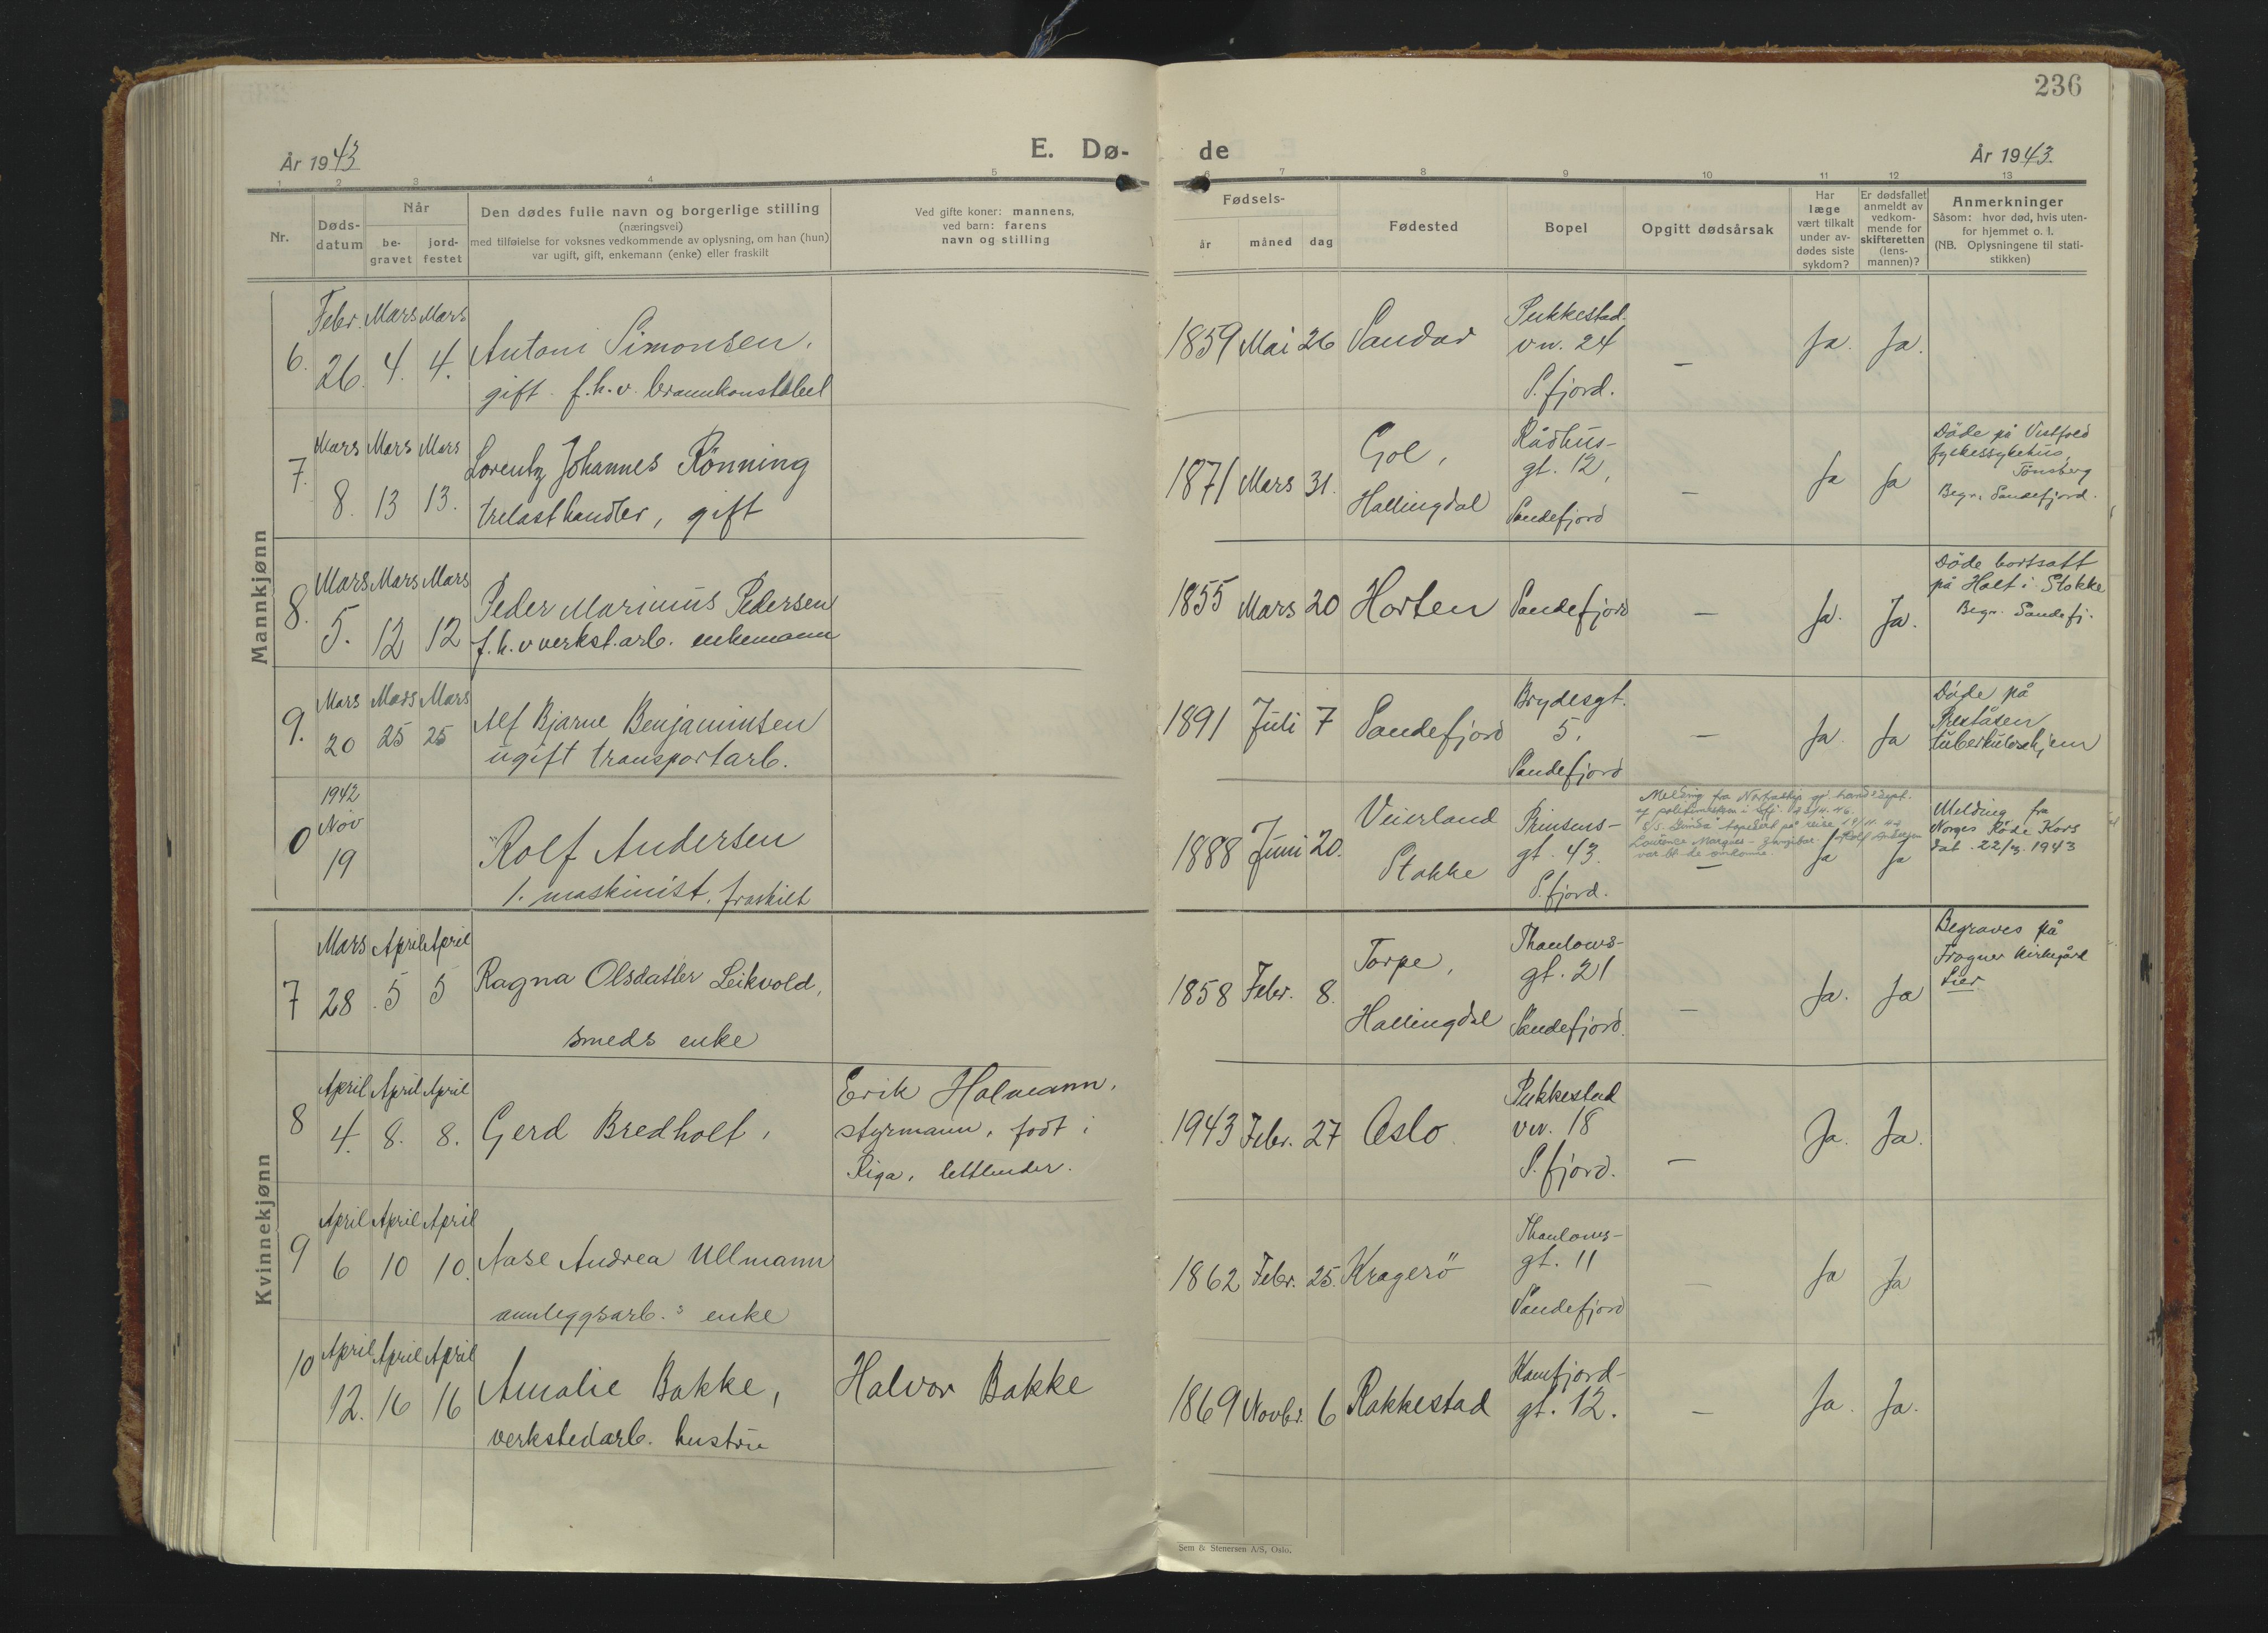 236
År 1943
E. Dø-
de
År 1943.
1 2 3 4 5
6 7 8 9 10 11 12 13
Nr.
Døds-
datum
Når
be-
gravet
jord-
festet
Den dødes fulle navn og borgerlige stilling
(næringsvei)
med tilføielse for voksnes vedkommende av oplysning, om han (hun)
var ugift, gift, enkemann (enke) eller fraskilt
Ved gifte koner: mannens,
ved barn: farens
navn og stilling
Fødsels-
år
måned
dag
Fødested
Bopel
Opgitt dødsårsak
Har
læge
vært tilkalt
under av-
dødes siste
sykdom?
Er dødsfallet
anmeldt av
vedkom-
mende for
skifteretten
(lens-
mannen)?
Anmerkninger
Såsom: hvor død, hvis uten-
for hjemmet o. l.
(NB. Oplysningene til stati-
stikken)
Mannkjønn
Febr. Mars Mars
6. 26. 4. 4.
Antoni Simonsen,
gift. f.h.v. brannkonstabel
1859 Mai 26 Sandar
Pukkestad
vn. 24
S.fjord.
— Ja. Ja.
Mars Mars Mars
7. 8. 13 13.
Lorentz Johannes Rönning
trelasthandler, gift
1871 Mars 31.
Gol,
Hallingdal
Rådhus-
gt. 12,
Sandefjord
— Ja Ja
Döde på Vestfold
fylkessykehus,
Tönsberg
Begr. Sandefjord.
Mars Mars Mars
8. 5. 12 12
Peder Marinius Pedersen
f.h.v verkst.arb. enkemann
1855 Mars 20 Horten Sandefjord
— Ja. Ja.
Döde bortsatt
på Holt i Stokke
Begr. Sandefj.
Mars Mars Mars
9. 20 25 25
Alf Bjarne Benjaminsen
ugift transportarb.
1891 Juli 7 Sandefjord
Brydesgt.
5.
Sandefjord
— Ja. Ja
Döde på
Preståsen
tuberkulosehjem
1942
Nov
0 19
Rolf Andersen
1. maskinist. fraskilt
1888 Juni 20.
Veierland
Stokke
Prinsens-
gt. 43.
S.fjord.
Melding fra
var bl. de omkomne.
— Ja Ja
Melding fra
Norges Röde Kors
dat. 22/3. 1943
Kvinnekjønn
Mars April April
7 28. 5 5
Ragna Olsdatter Leikvold,
smeds enke
1858 Febr. 8.
Torpe,
Hallingdal
Thaulows-
gt. 21
Sandefjord.
— Ja. Ja
Begraves på
Frogner kirkegård
Lier
April April April
8 4. 8. 8.
Gerd Bredholt,
Erik Holmann,
styrmann, født i
Riga, lettlender.
1943 Febr. 27 Oslo.
Pukkestad
vn. 18
S.fjord.
— Ja. Ja.
April April April
9 6 10 10.
Aase Andrea Ullmann
annleggsarb.s enke
1862 Febr. 25. Kragerö
Thaulows-
gt. 11
Sandefjord
— Ja Ja
April April April
10 12. 16 16
Amalie Bakke,
verkstedarb. hustru
Halvor Bakke
1869 Novbr. 6 Rakkestad
Kamfjord-
gt. 12.
— Ja. Ja.
Sem & Stenersen A/S, Oslo.